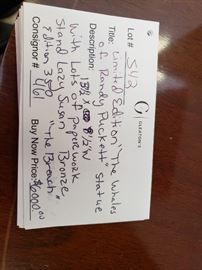 GALLERIES
Lot # 542
Title: Limited Edition "The Whales
of Randy Puckett" Statue
Description: 13½ x 8½"W
With Lots of paperwork
Stand Lazy Susan Bronze
Edition 350 "The Breach"
Consignor # 461 Buy Now Price: $6000.00